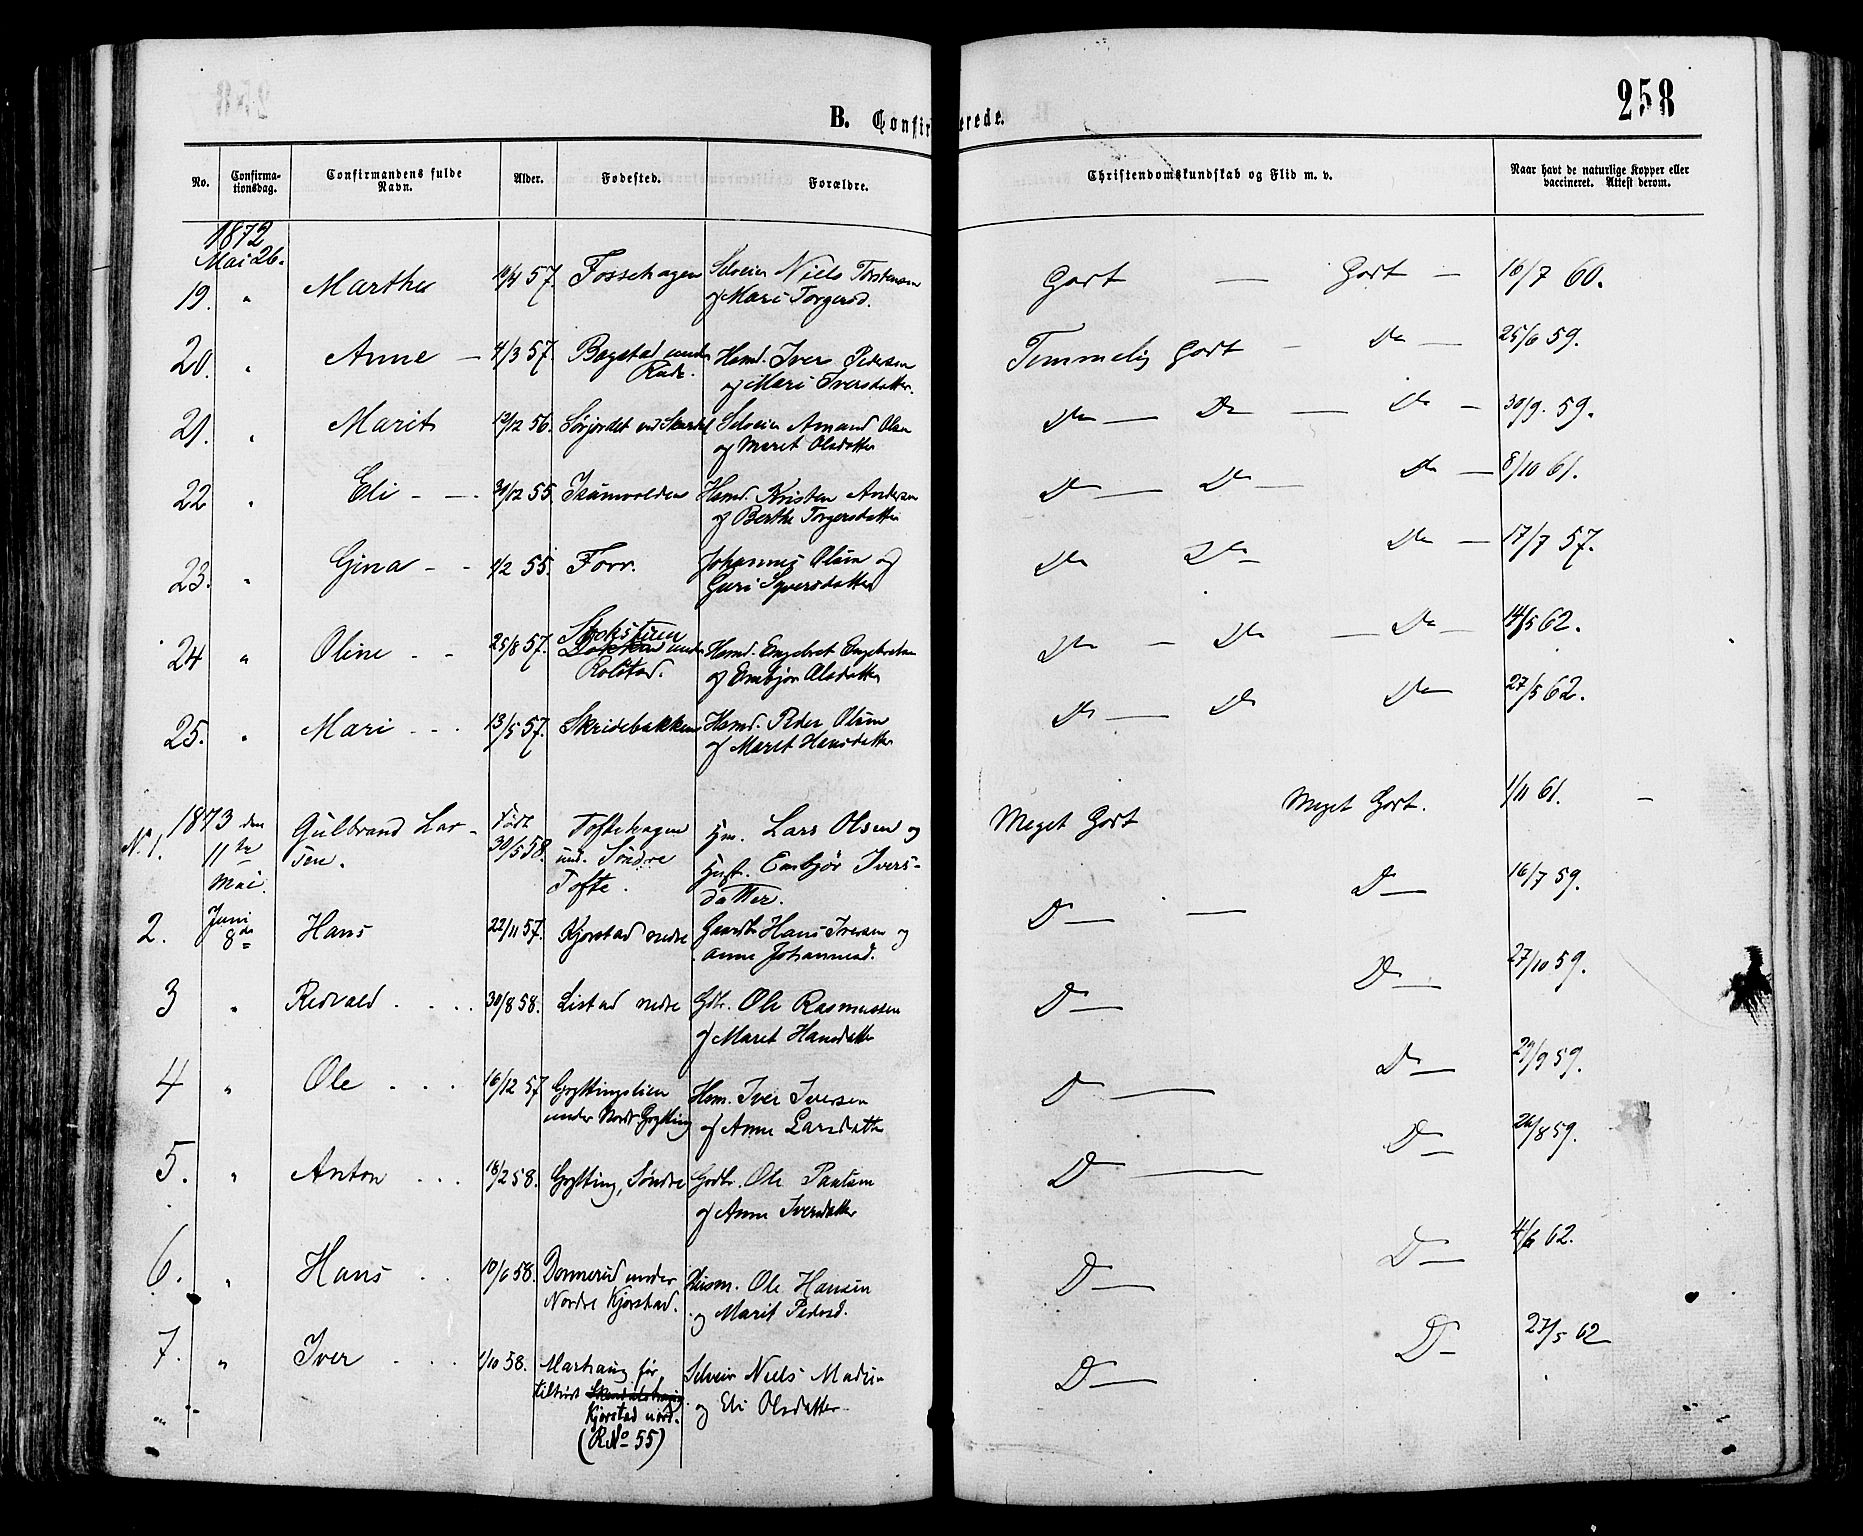 258
B. Confir erede.
No. Confirma-tionsdag. Confirmandens fulde Navn. Alder. Fødested. Forældre. Christendomskundskab og Flid m. v. Naar havt de naturlige Kopper eller vaccineret. Attest derom.
1872
Mai 26.
19. " Marthe 57. Fossehagen Selveier Niels Torstensen Godt — Godt — 16/7 60.
og Mari Torgersd.
20. " Anne — 4/3 57. Bagstad under Hsmd. Iver Pedersen Temmelig Godt — Do — 25/6 59.
Rude. og Mari Iversdatter.
21. " Marit 12/12 56. Sørjordet Selveier Amund Olsen Do — Do — Do — 30/9. 59.
og Maret Olsdatter
22 " Eli - - 30/12 55. Hsmd. Kristen Andersen Do — Do — Do — 8/10 61.
og Berthe Torgersdatter
23. " Gina - - 1/2 55. Forr. Johannes Olsen og Do Do Do — 17/7 57.
Guri Syversdatter
24 " Oline - - 25/8 57. Stokstuen
under Hsmd. Engebret Engebretsen Do — Do — Do — 14/5 62.
Rolstad. og Embjør Olsdatter
25. " Mari - - - 13/5 57. Skridebakken Hsmd. Peder Olsen Do — Do Do 27/5 62.
og Maret Hansdatter
1873 den Gulbrand Lar- Født Toftehagen Hm. Lars Olsen og Meget Godt Meget Godt. 1/11 61.
No 1. 11te sen. 30/5 58. und. Søndre Hust. Embjør Ivers-
Mai. Tofte. datter.
2. Juni 8de Hans 22/11 57. Kjorstad nedre Gaardbr Hans Iversen og D — — D — 16/7 59.
Anne Johannesd.
3 " Redvald . . . . 30/8 58. Listad nedre Gdbr. Ole Rasmussen D — D — 27/10 59.
og Maret Hansdatter
4 " Ole . . . 16/12 57 Gryttingslien Hsm. Iver Iversen D — Do — 29/9 59.
under Nordr Grytting og Anne Larsdatter
5. " Anton . . . 18/2 58. Grytting, Søndre Gdbr. Ole Paulsen D — D — 26/8 59.
og Anne Iversdatter
6. " Hans . . 10/6 58. Donnerud under Husm. Ole Hansen D — D — 4/6 62.
Nordre Kjorstad. og Marit Pedersd.
7. " Iver . . . 1/10 58. Marhaug før, Selveier Niels Madsen D — D — 27/5 62
tilhørt og Eli Olsdatter
Kjorstad nord.
(RNo 55)